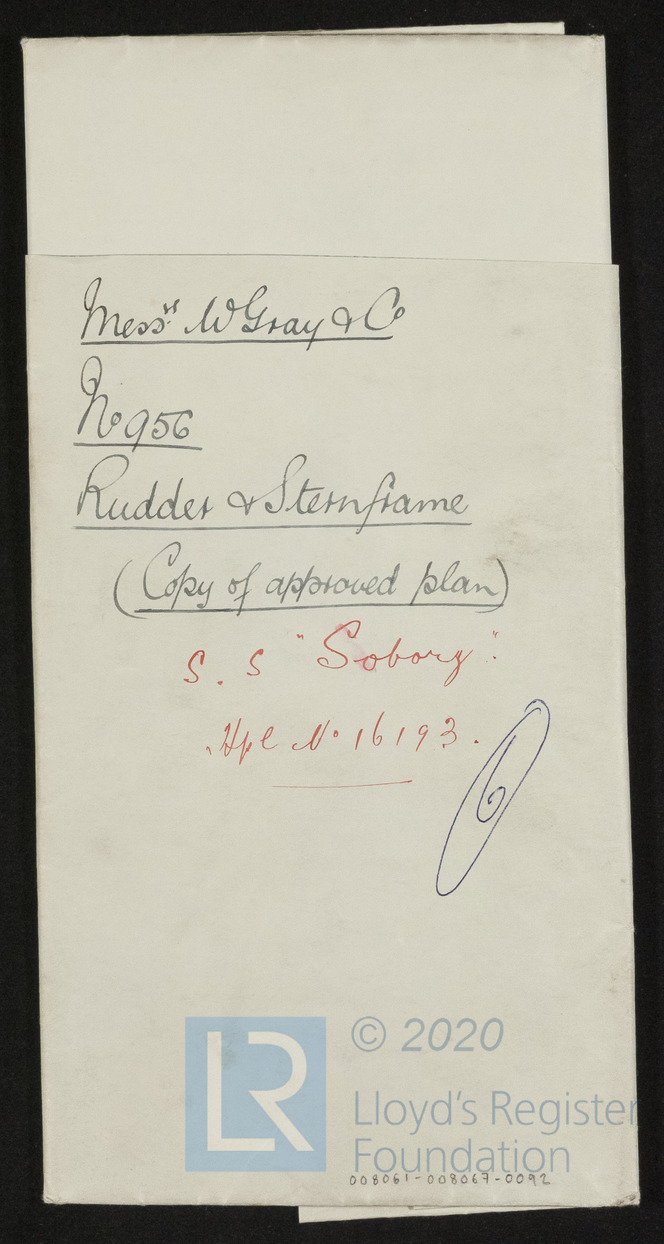 Messrs W Gray & Co
No 956
Rudder & Sternframe
(Copy of approved plan)
S. S "Soborg".
Hpl No 16193.
LR
© 2020
Lloyd's Register
Foundation
008061-008067-0092